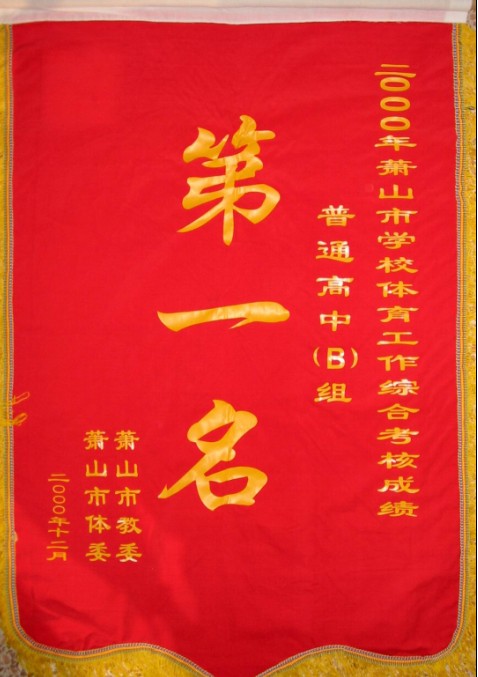 二000年萧山市学校体育工作综合考核成绩
普通高中（B）组
第一名
萧山市教委
萧山市体委
二000年十二月